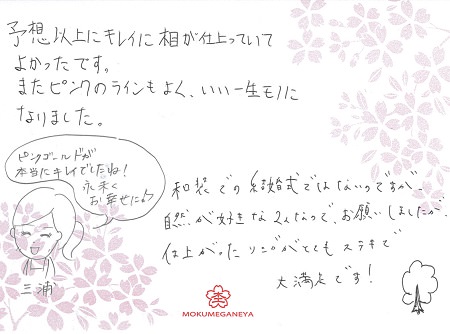 予想以上にキレイに相が仕上っていて
よかったです。
またピンクのラインもよく、いい一生モノに
なりました。
ピンクゴールドが
本当にキレイでしたね!
末永く
お幸せに♡
三浦
和装での結婚式ではないのですが、
自然が好きな2人なので、お願いしましたが、
仕上がったリングがとてもステキで
大満足です!
MOKUMEGANEYA